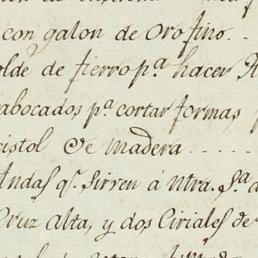 con galon de Oro fino..
olde de fierro pa. hacer
abocados pa. cortar formas
istol de Madera.....
Andas qe. sirven á Ntra. Sa.
Cruz Alta, y dos Ciriales de